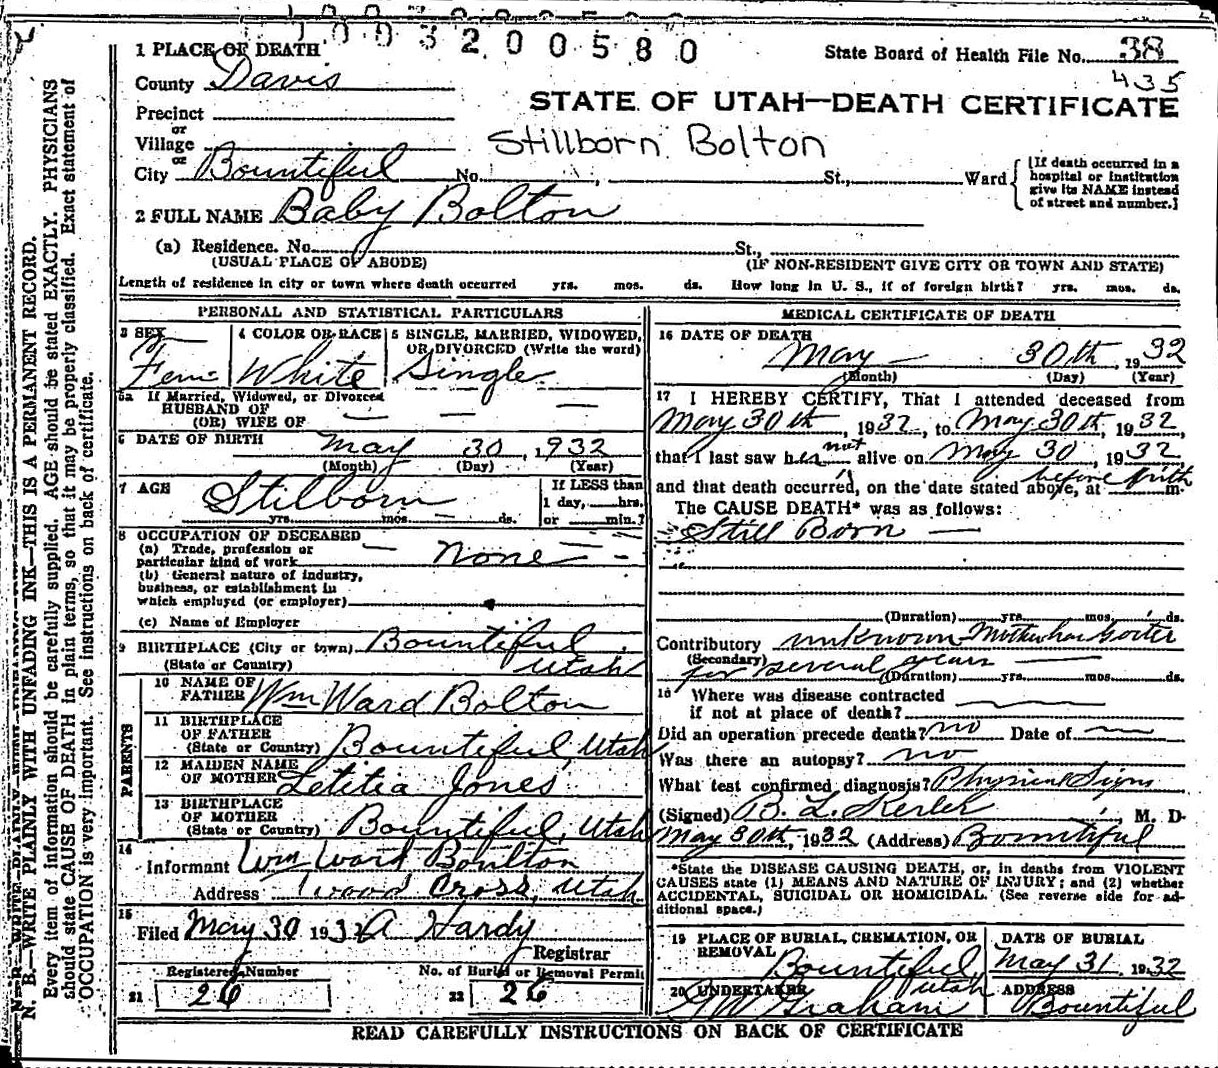 1003200580
1 PLACE OF DEATH
State Board of Health File No. 38
County Davis
435
STATE OF UTAH—DEATH CERTIFICATE
Precinct
or
Village
Stillborn Bolton
or
City Bountiful No. , St., Ward
[If death occurred in a
hospital or institution
give its NAME instead
of street and number.]
2 FULL NAME Baby Bolton
(a) Residence. No. St.,
(USUAL PLACE OF ABODE) (IF NON-RESIDENT GIVE CITY OR TOWN AND STATE)
Length of residence in city or town where death occurred yrs. mos. ds. How long in U. S., if of foreign birth? yrs. mos. ds.
PERSONAL AND STATISTICAL PARTICULARS
3 SEX
Fem
4 COLOR OR RACE
White
5 SINGLE, MARRIED, WIDOWED,
OR DIVORCED (Write the word)
Single
5a If Married, Widowed, or Divorced
HUSBAND OF
(OR) WIFE OF — — —
6 DATE OF BIRTH May 30, 1932
(Month) (Day) (Year)
7 AGE
Stilborn
yrs. mos. ds.
If LESS than
1 day, hrs.
or min.?
8 OCCUPATION OF DECEASED
(a) Trade, profession or
particular kind of work — None —
(b) General nature of industry,
business, or establishment in
which employed (or employer)
(c) Name of Employer
9 BIRTHPLACE (City or town) Bountiful
(State or Country) Utah
PARENTS
10 NAME OF
FATHER Wm Ward Bolton
11 BIRTHPLACE
OF FATHER
(State or Country) Bountiful, Utah
12 MAIDEN NAME
OF MOTHER Letitia Jones
13 BIRTHPLACE
OF MOTHER
(State or Country) Bountiful, Utah
14
Informant Wm Ward Boulton
Address Wood Cross, Utah
15
Filed May 30 1932 A Hardy
Registrar
Registered Number
21 26
No. of Burial or Removal Permit
22 26
MEDICAL CERTIFICATE OF DEATH
16 DATE OF DEATH
May 30th, 1932
(Month) (Day) (Year)
17 I HEREBY CERTIFY, That I attended deceased from
May 30th, 1932, to May 30th, 1932,
that I last saw her not alive on May 30, 1932
and that death occurred, on the date stated above, at before birth m.
The CAUSE DEATH* was as follows:
Still Born —
(Duration) yrs. mos. ds.
Contributory unknown - Mother has Goiter
(Secondary) for several years —
(Duration) yrs. mos. ds.
18 Where was disease contracted
if not at place of death?
Did an operation precede death? no Date of —
Was there an autopsy? no
What test confirmed diagnosis? Physical Signs
(Signed) B. L. M. D.
May 30th, 1932 (Address) Bountiful
*State the DISEASE CAUSING DEATH, or, in deaths from VIOLENT
CAUSES state (1) MEANS AND NATURE OF INJURY; and (2) whether
ACCIDENTAL, SUICIDAL OR HOMICIDAL. (See reverse side for ad-
ditional space.)
19 PLACE OF BURIAL, CREMATION, OR
REMOVAL
Bountiful, Utah
DATE OF BURIAL
May 31 1932
20 UNDERTAKER
Graham
ADDRESS
Bountiful
READ CAREFULLY INSTRUCTIONS ON BACK OF CERTIFICATE
N. B.—WRITE PLAINLY WITH UNFADING INK—THIS IS A PERMANENT RECORD.
Every item of information should be carefully supplied. AGE should be stated EXACTLY. PHYSICIANS
should state CAUSE OF DEATH in plain terms, so that it may be properly classified. Exact statement of
OCCUPATION is very important. See instructions on back of certificate.